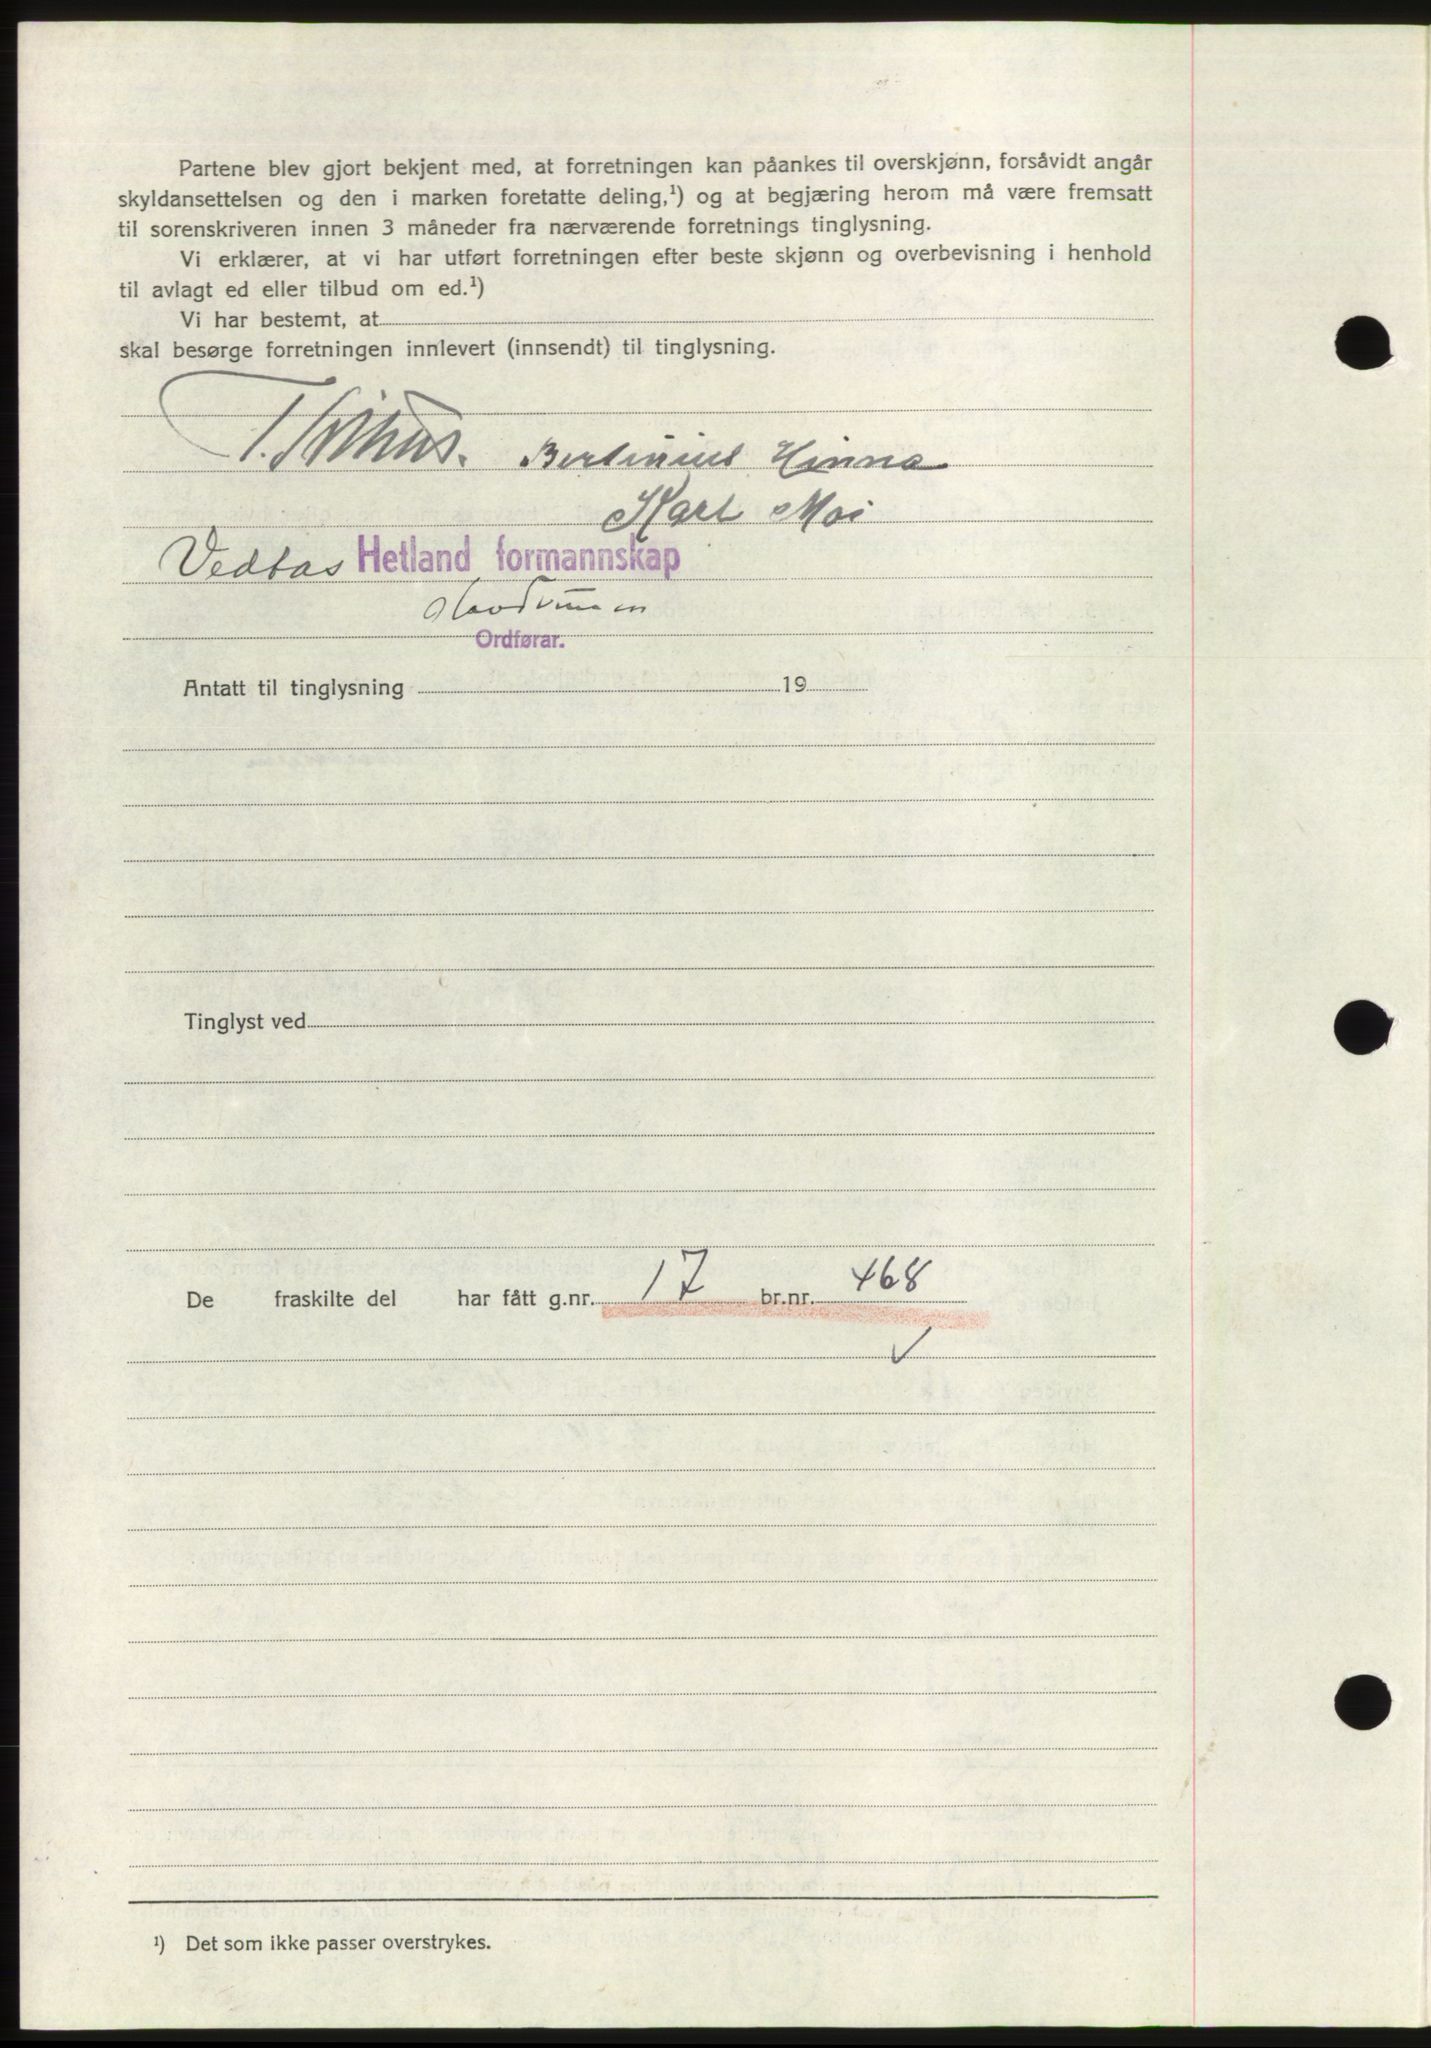 Partene blev gjort bekjent med, at forretningen kan påankes til overskjønn, forsåvidt angår
skyldansettelsen og den i marken foretatte deling,¹) og at begjæring herom må være fremsatt
til sorenskriveren innen 3 måneder fra nærværende forretnings tinglysning.
Vi erklærer, at vi har utført forretningen efter beste skjønn og overbevisning i henhold
til avlagt ed eller tilbud om ed.¹)
Vi har bestemt, at
skal besørge forretningen innlevert (innsendt) til tinglysning.
T. Bertinius Hinna
Karl Moi
Vedtas Hetland formannskap
Ordførar.
Antatt til tinglysning 19
Tinglyst ved
De fraskilte del har fått g.nr. 17 br.nr. 468
✓
¹) Det som ikke passer overstrykes.